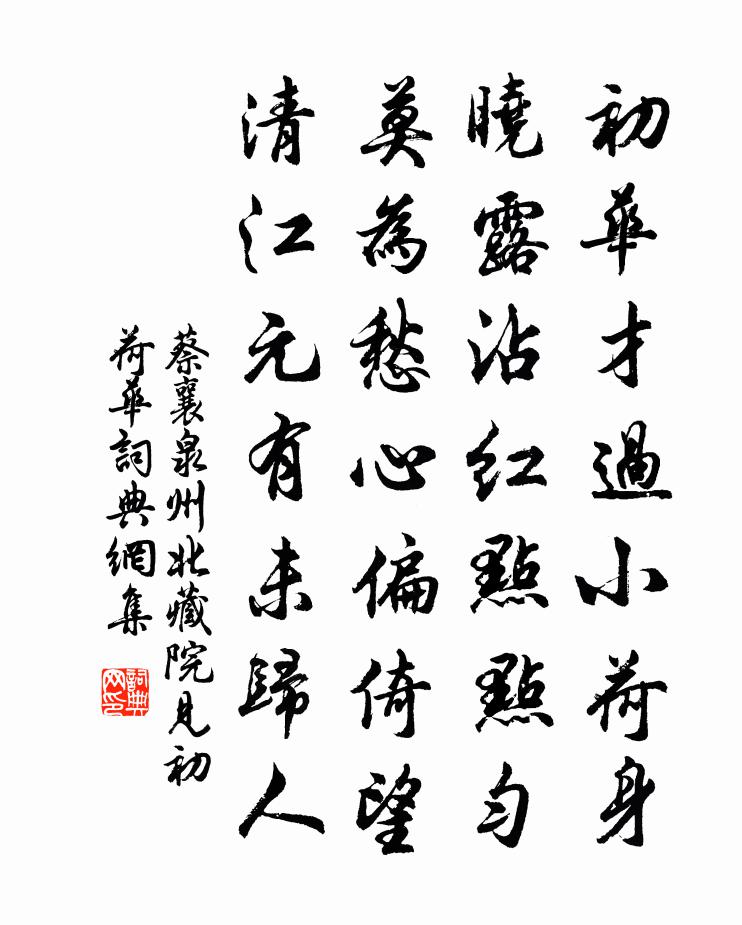 初華才過小荷身
曉露沾紅點點勻
莫為愁心偏倚望
清江元有未歸人
蔡襄泉州北藏院見初
荷華詞典網集
詞典網印